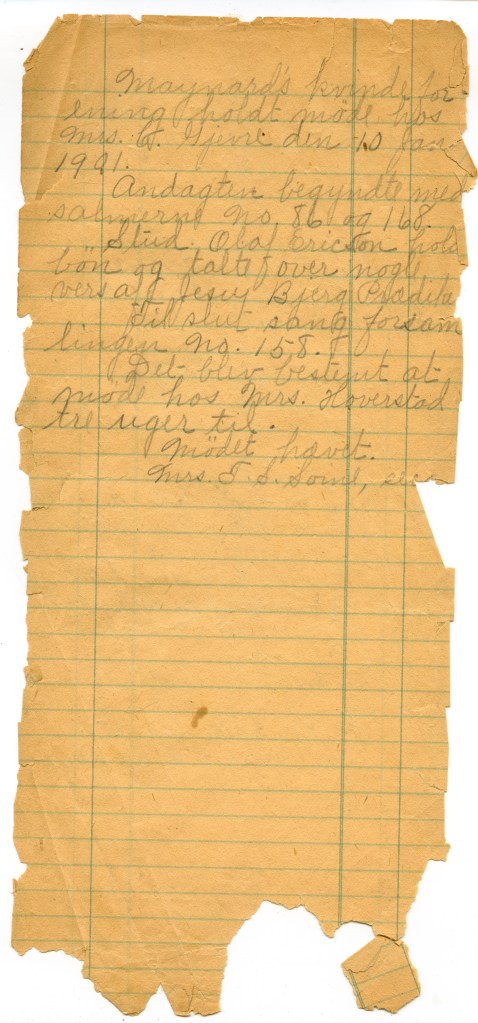 Maynards kvinde for
ening holdt møde hos
Mrs. G. Gjevre den 10 Jan.
1901.
Andagten begyndte med
salmerne No. 86 og 168.
Stud. Olaf Ericson hold
bön og talte over nogle
vers af Jesu Bjerg Prædike
Til slut sang forsam
lingen No. 158.
Det blev bestemt at
møde hos Mrs. Hoverstad
tre uger til.
Mödet hævet.
Mrs. T. S. sec